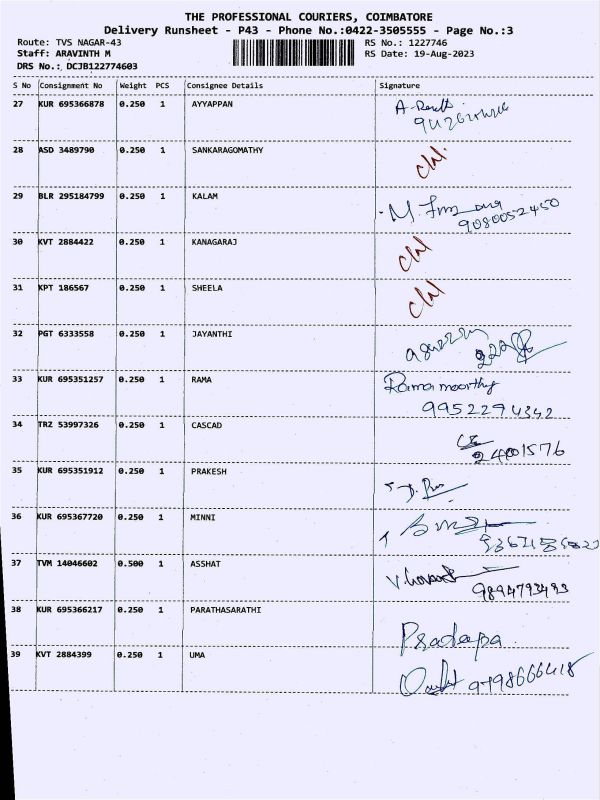 THE PROFESSIONAL COURIERS, COIMBATORE
Delivery Runsheet - P43 - Phone No.:0422-3505555 - Page No.:3
Route: TVS NAGAR-43 RS No.: 1227746
Staff: ARAVINTH M RS Date: 19-Aug-2023
DRS No.: DCJB122774603
S No Consignment No Weight PCS Consignee Details Signature
27 KUR 695366878 0.250 1 AYYAPPAN
28 ASD 3489790 0.250 1 SANKARAGOMATHY
29 BLR 295184799 0.250 1 KALAM
9080052450
30 KVT 2884422 0.250 1 KANAGARAJ
31 KPT 186567 0.250 1 SHEELA
32 PGT 6333558 0.250 1 JAYANTHI
33 KUR 695351257 0.250 1 RAMA Ramamoorthy
9952294342
34 TRZ 53997326 0.250 1 CASCAD
24401576
35 KUR 695351912 0.250 1 PRAKESH
36 KUR 695367720 0.250 1 MINNI
37 TVM 14046602 0.500 1 ASSHAT
9894793493
38 KUR 695366217 0.250 1 PARATHASARATHI Pradeepa
39 KVT 2884399 0.250 1 UMA 9798666418